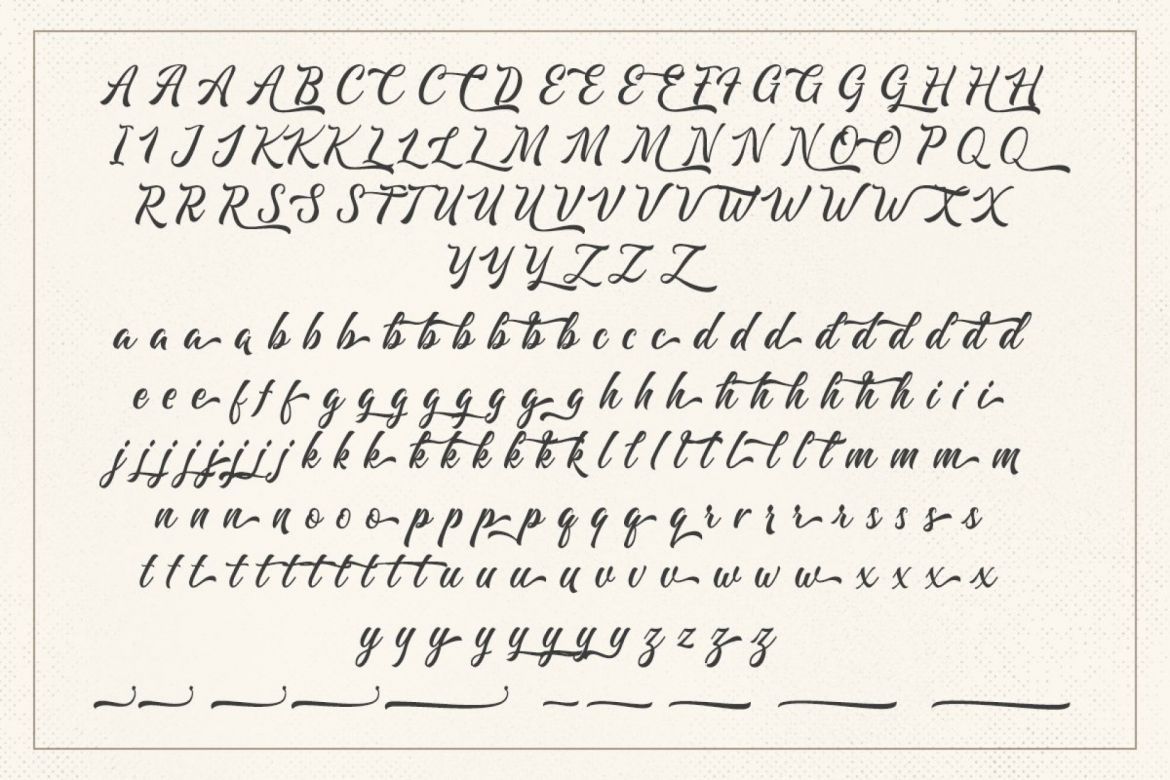 A A A A B C C C C D E E E E F F G G G G H H H
I I J J K K K L L L L M M M N N N O O P Q Q
R R R S S S T T U U U V V V V W W W W X X
Y Y Y Z Z Z
a a a a b b b b b b b b c c c d d d d d d d d
e e e f f f g g g g g g g g h h h h h h h h i i i
j j j j j j j j k k k k k k k k l l l l l l l l l m m m m
n n n n o o o p p p p q q q q r r r r r s s s s
t t t t t t t t t t t u u u u v v v w w w x x x x
y y y y y y y y z z z z